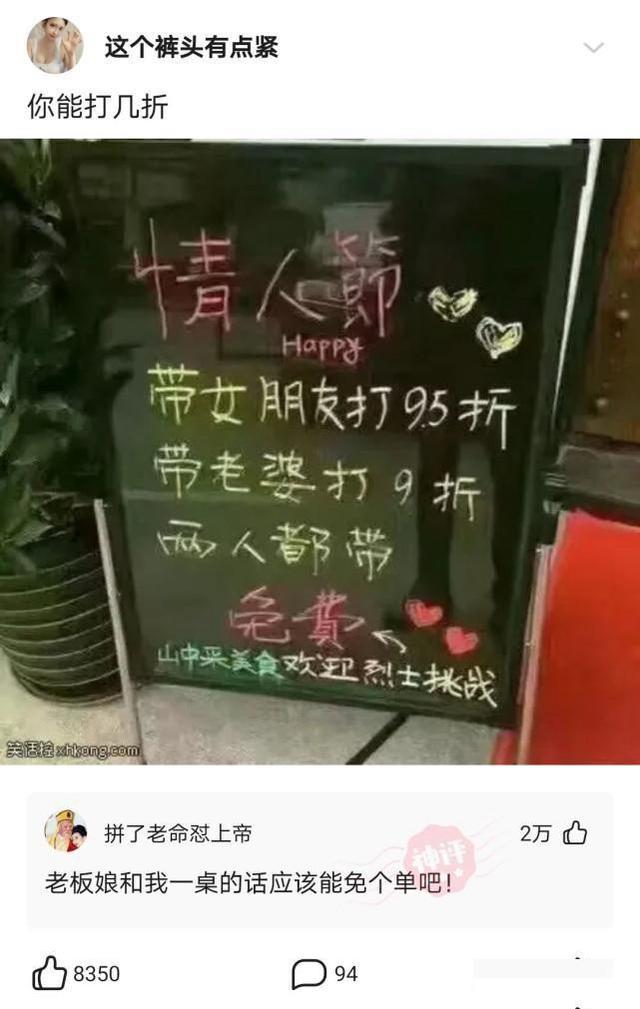 这个裤头有点紧
你能打几折
情人節
Happy
带女朋友打9.5折
带老婆打9折
两人都带
免費
山中采美食欢迎烈士挑战
笑话控xhkong.com
拼了老命怼上帝
2万
神评
老板娘和我一桌的话应该能免个单吧!
8350
94